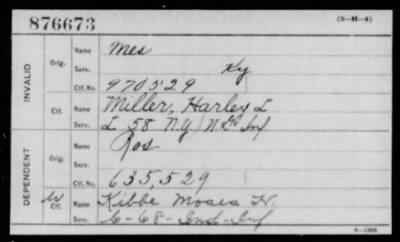 876673 (3-H-4)
INVALID
Orig. Name Mes
Serv. Ky
Ctf. No. 970529
Ctf. Name Miller, Harley L
Serv. L 58 N.Y. Inf
DEPENDENT
Orig. Name Ros
Serv.
Ctf. No. 635,529
W Ctf. Name Kibbe Moses W.
Serv. C-68-Ind-Inf
6-1308